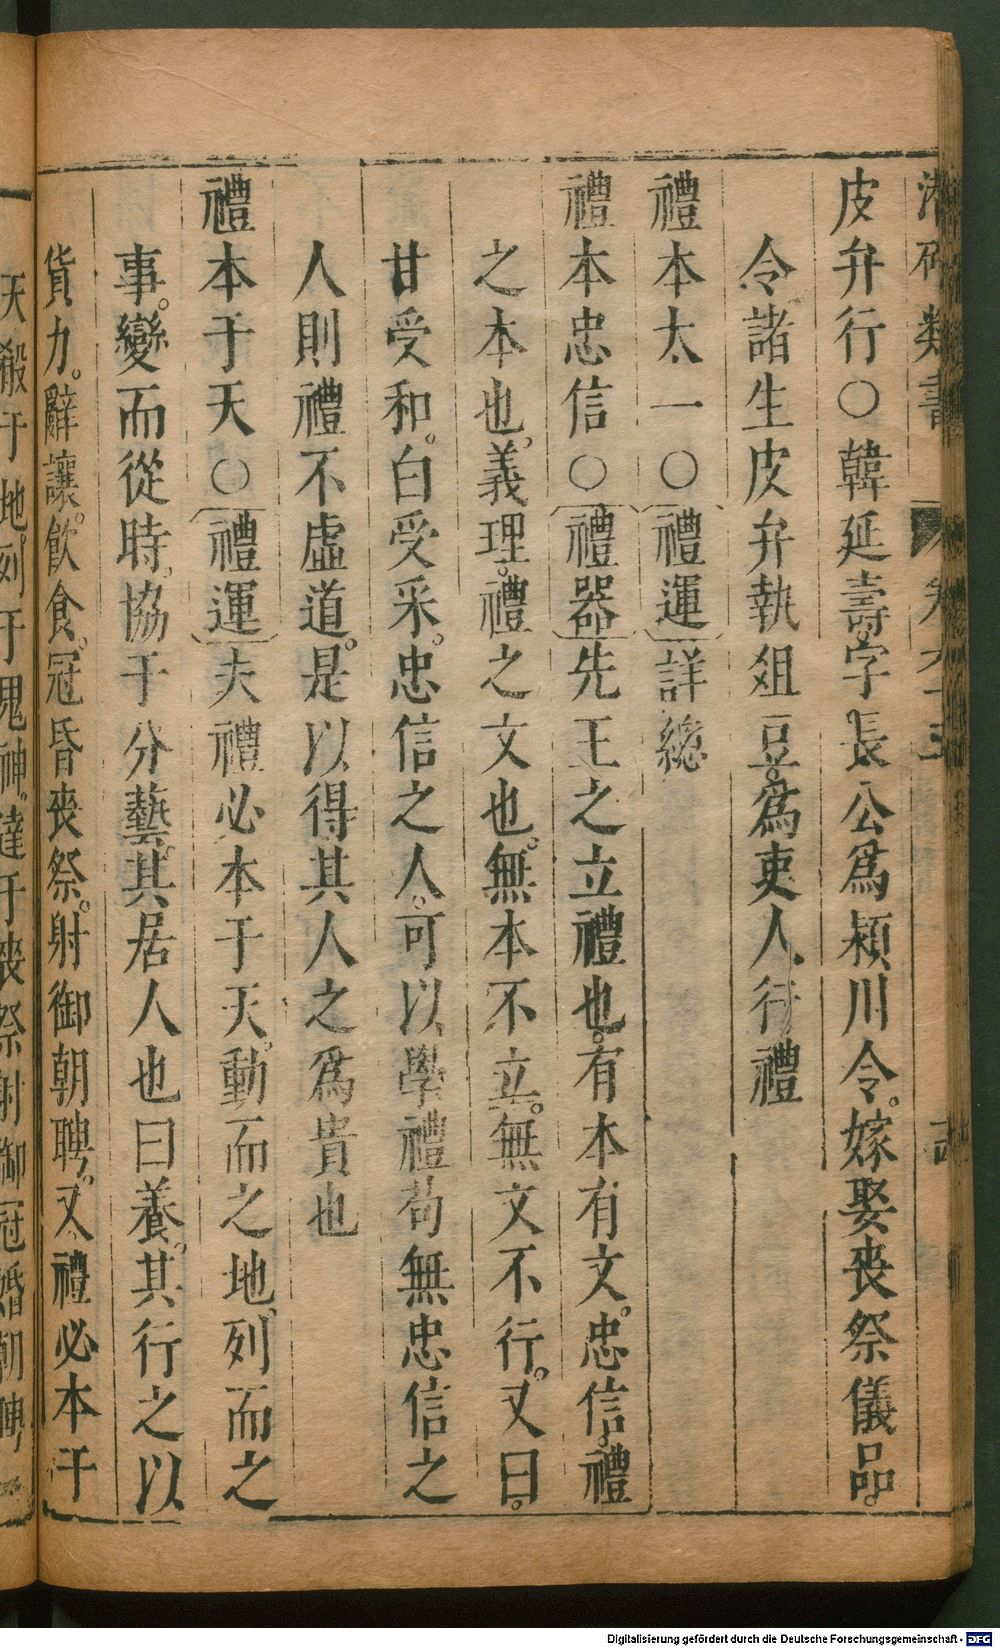 類書
皮弁行○韓延壽字長公爲潁川令嫁娶喪祭儀品
令諸生皮弁執俎豆爲吏人行禮
禮本太一○禮運詳總
禮本忠信○禮器先王之立禮也有本有文忠信禮
之本也義理禮之文也無本不立無文不行又曰
甘受和白受采忠信之人可以學禮苟無忠信之
人則禮不虛道是以得其人之爲貴也
禮本于天○禮運夫禮必本于天動而之地列而之
事變而從時協于分藝其居人也曰養其行之以
貨力辭讓飲食冠昏喪祭射御朝聘又禮必本于
天殽于地列于鬼神達于喪祭射御冠婚朝聘
Digitalisierung gefördert durch die Deutsche Forschungsgemeinschaft - DFG